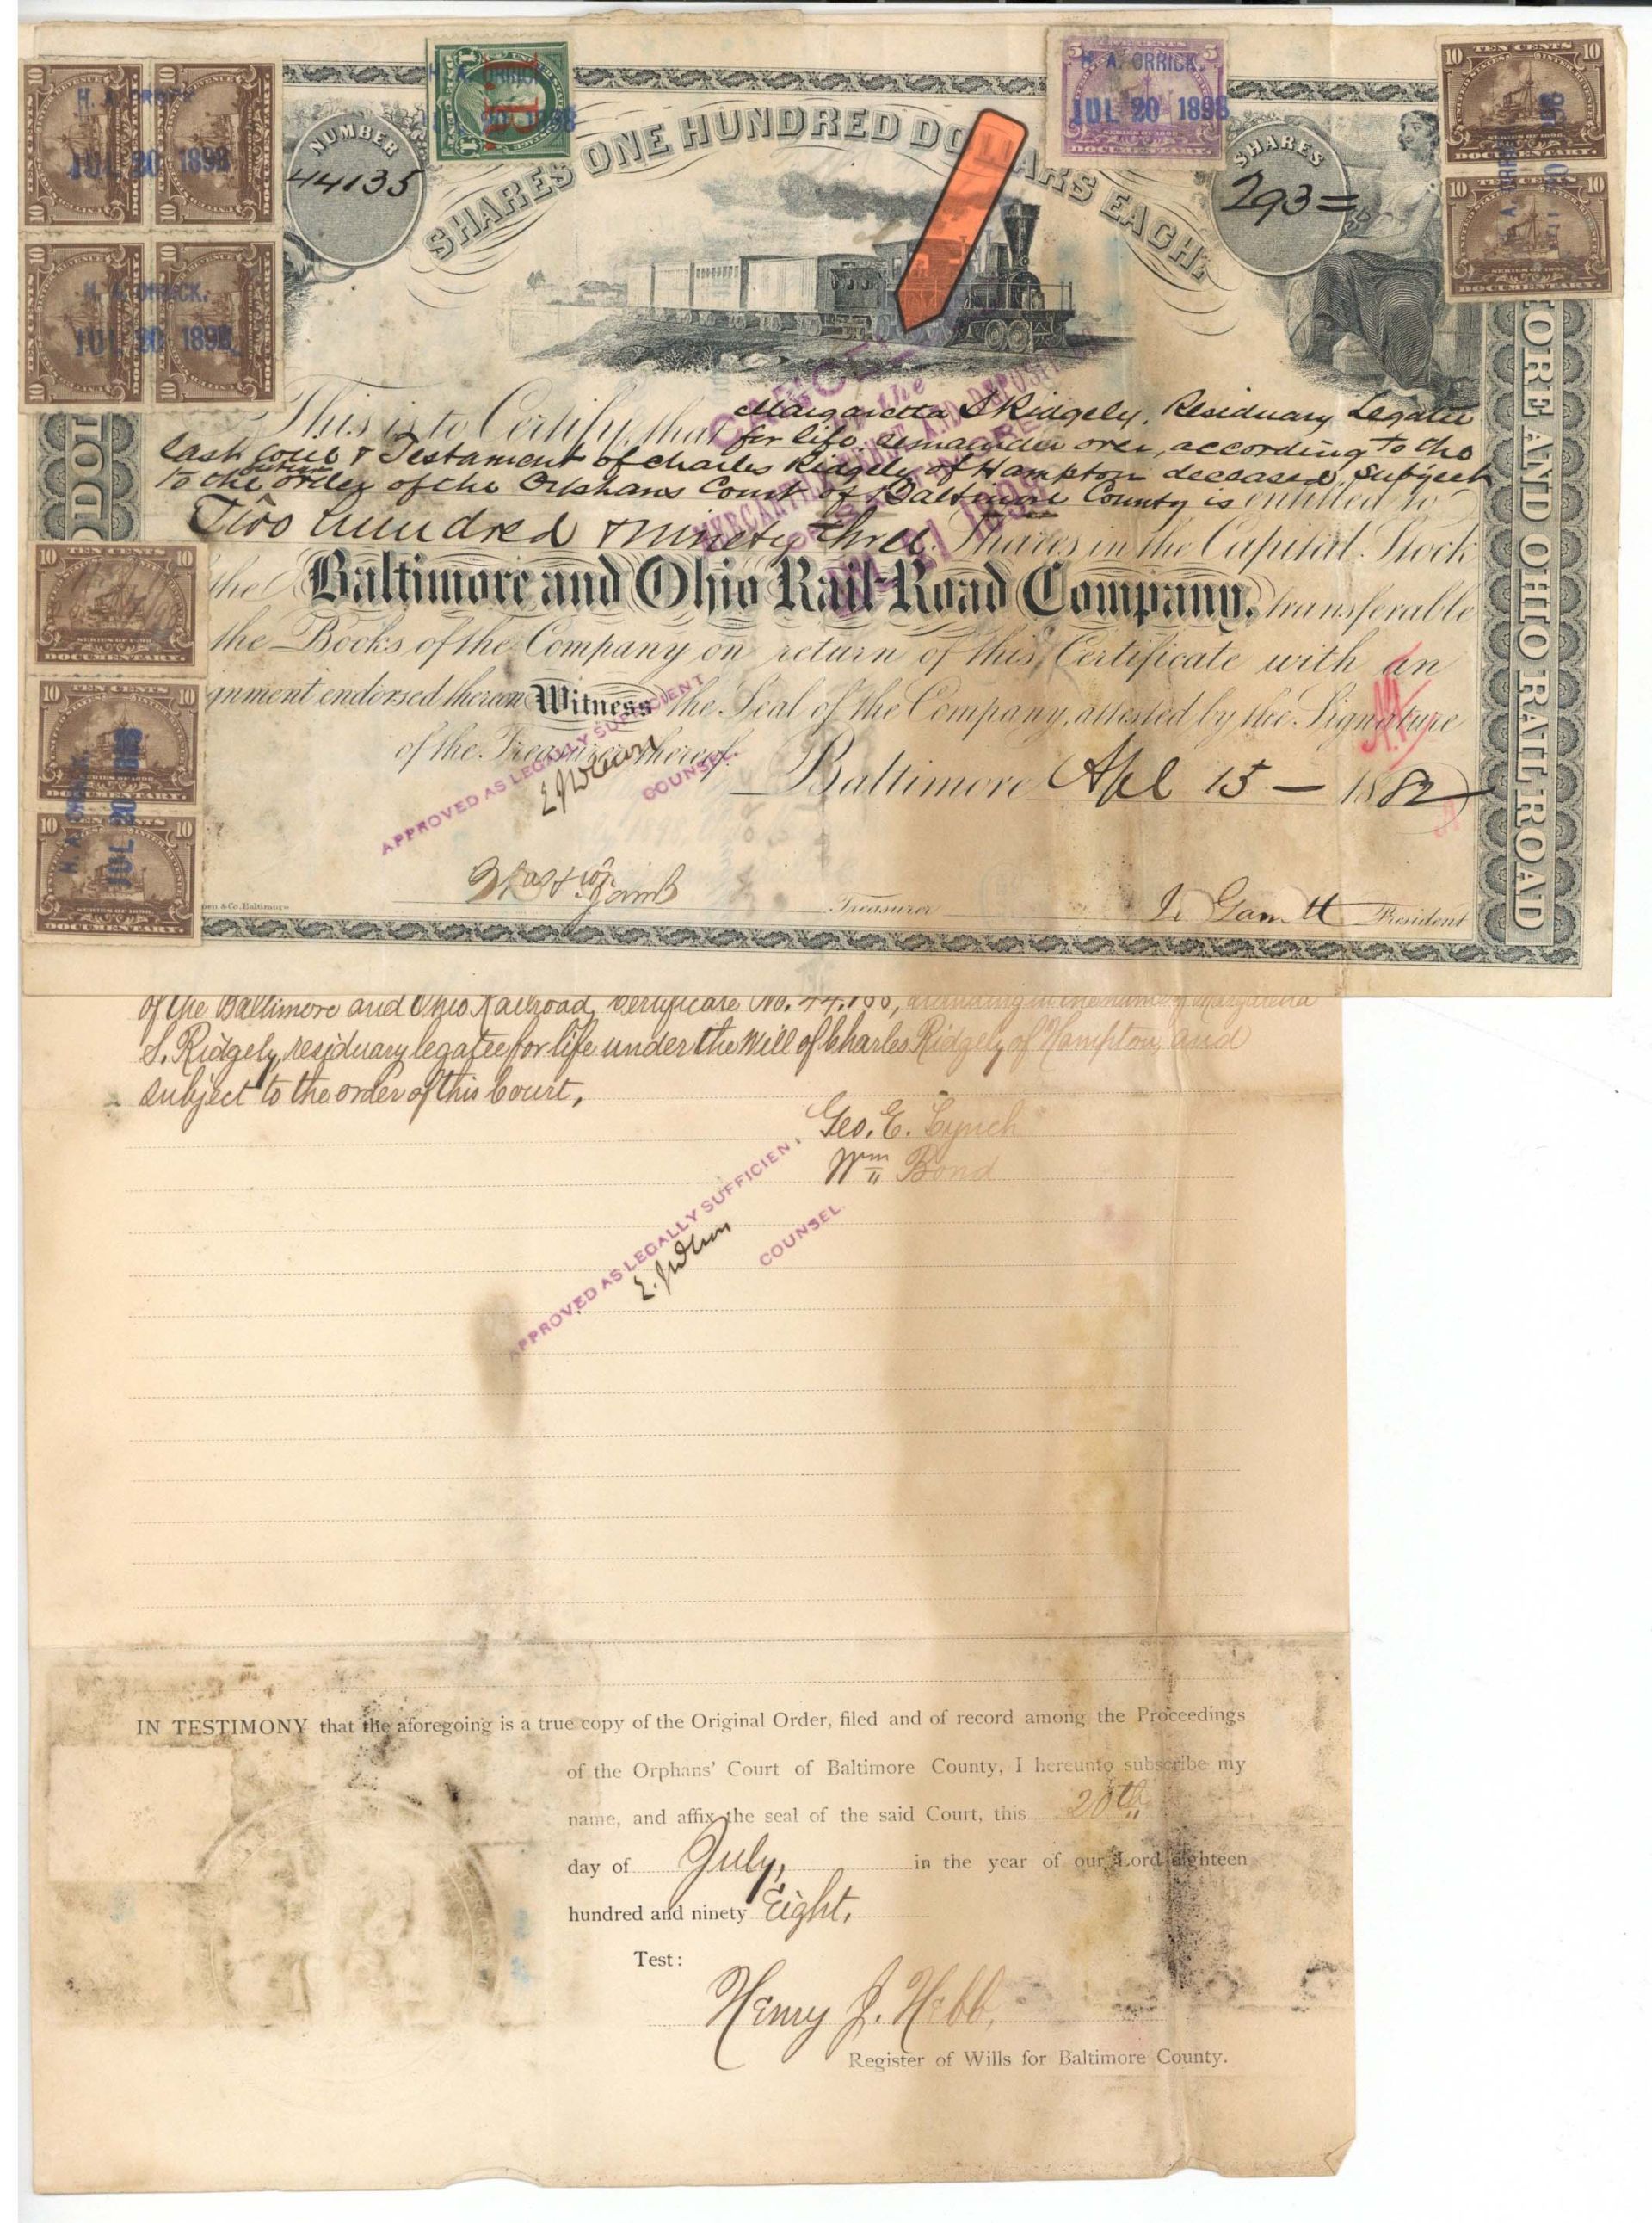 NUMBER
44135
SHARES ONE HUNDRED DOLLARS EACH.
SHARES
293=
H. A. ORRICK.
JUL 20 1898
H. A. ORRICK.
JUL 20 1898
H. A. ORRICK.
JUL 20 1898
FIVE CENTS
5 5
SERIES OF 1898
DOCUMENTARY.
H. A. ORRICK.
JUL 20 1898
10 TEN CENTS 10
SERIES OF 1898
DOCUMENTARY.
10 10
SERIES OF 1898
DOCUMENTARY.
This is to Certify, that Margaretta S Ridgely, Residuary Legatee
for life, remainder over, according to the
last Will & Testament of Charles Ridgely of Hampton deceased, Subject
to the order of the Orphans Court of Baltimore County is entitled to
Two hundred & ninety three Shares in the Capital Stock
the Baltimore and Ohio Rail-Road Company, transferable
the Books of the Company on return of this Certificate with an
gnment endorsed thereon Witness the Seal of the Company, attested by the Signature
of the Treasurer thereof.
Baltimore Apl 15 — 1882
APPROVED AS LEGALLY SUFFICIENT
COUNSEL.
10 TEN CENTS 10
SERIES OF 1898
DOCUMENTARY.
10 TEN CENTS 10
SERIES OF 1898
DOCUMENTARY.
JUL 20
10 TEN CENTS 10
SERIES OF 1898
DOCUMENTARY.
& Co. Baltimore
Treasurer
J. W. Garrett President
DOL
ORE AND OHIO RAIL ROAD
of the Baltimore and Ohio Railroad, Certificate No. 44.135, standing in the name of Margaretta
S. Ridgely, residuary legatee for life under the Will of Charles Ridgely of Hampton, and
subject to the order of this Court.
Geo. E. Lynch
Wm Bond
APPROVED AS LEGALLY SUFFICIENT
COUNSEL.
IN TESTIMONY that the aforegoing is a true copy of the Original Order, filed and of record among the Proceedings
of the Orphans' Court of Baltimore County, I hereunto subscribe my
name, and affix the seal of the said Court, this 20th
day of July, in the year of our Lord eighteen
hundred and ninety Eight.
Test:
Henry J. Hebb,
Register of Wills for Baltimore County.